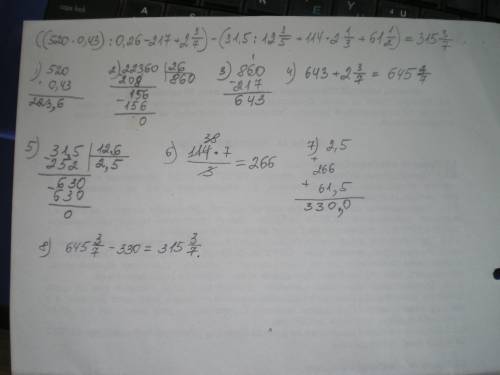 ((520·0,43):0,26-217+2 3/7)-(31,5:12 3/5+114·2 1/3+61 1/2)=315 3/7.
1) 520
·0,43
223,6
2) 22360 | 26
208 | 860
-156
156
0
3) 860
-217
643
4) 643+2 3/7=645 3/7
5) 31,5 | 12,6
-252 | 2,5
-630
630
0
6) 38
114·7/3=266
7) 2,5
+
266
+ 61,5
330,0
8) 645 3/7-330=315 3/7.